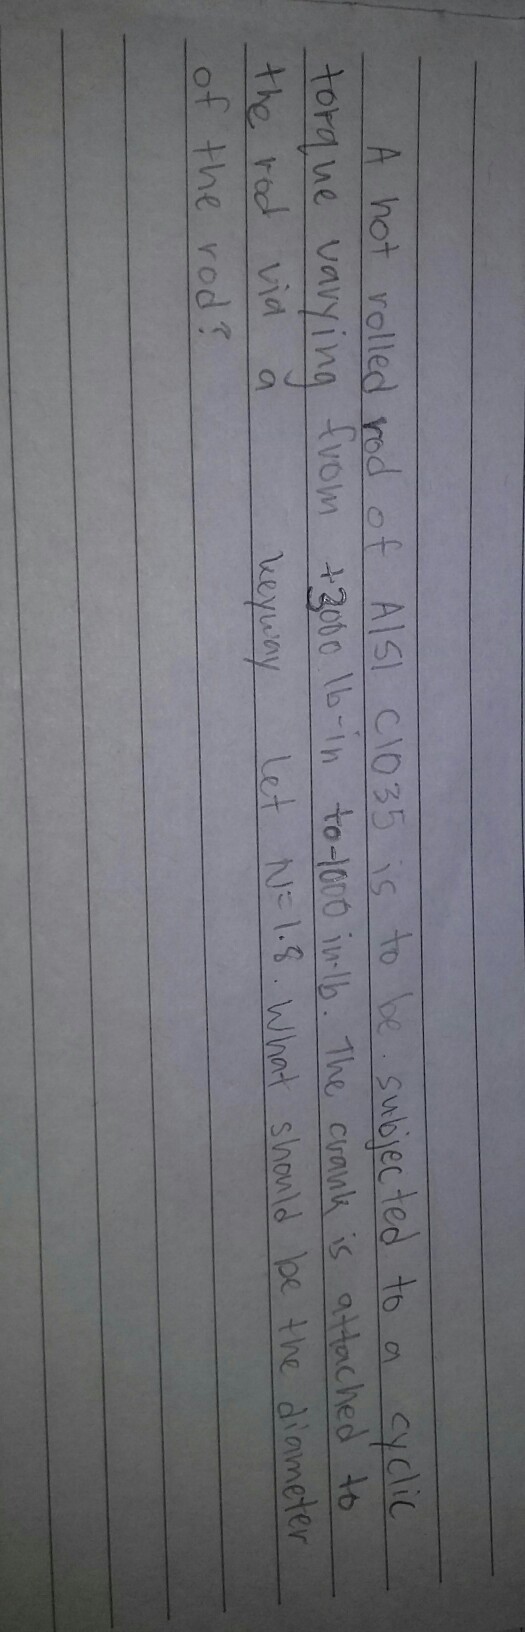 A hot rolled rod of AISI C1035 is to be subjected to a cyclic
torque varying from +3000 lb-in to -1000 in-lb. The crank is attached to
the rod via a keyway Let N=1.8. What should be the diameter
of the rod?